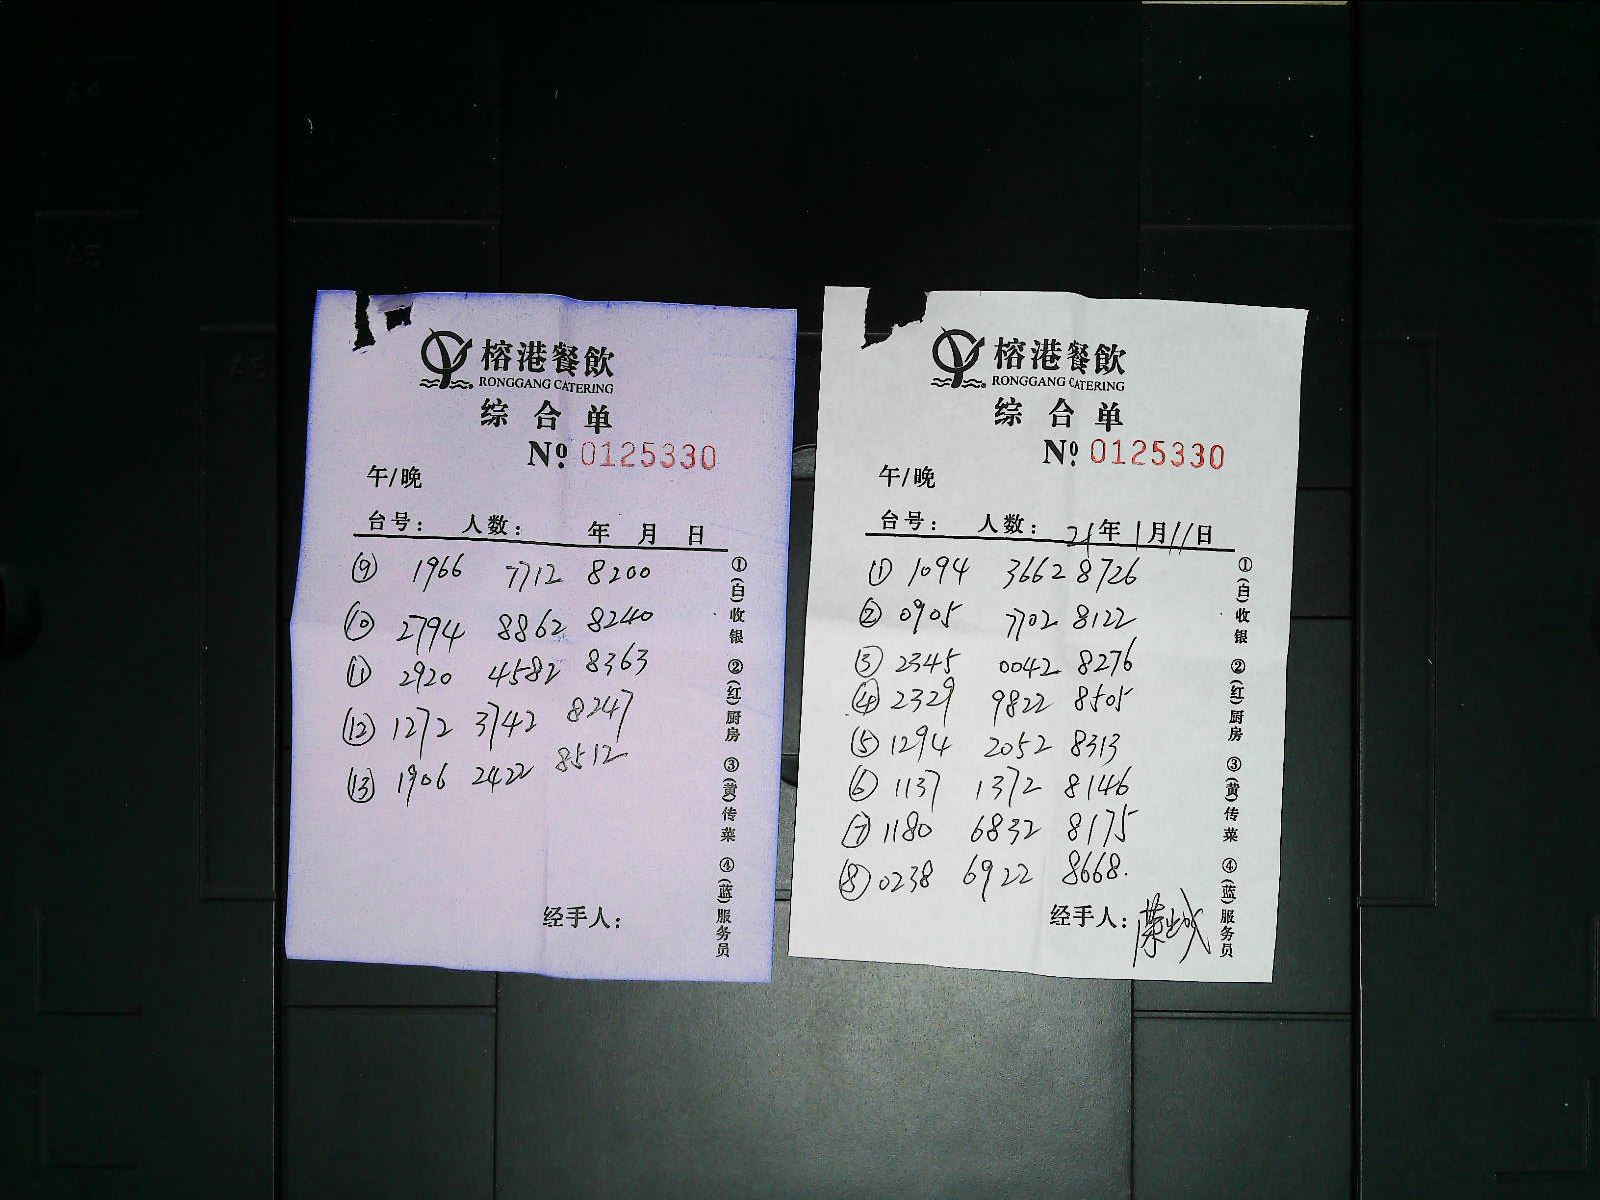 榕港餐飲
RONGGANG CATERING
综合单
№ 0125330
午/晚
台号: 人数: 年 月 日
⑨ 1966 7712 8200
⑩ 2794 8862 8240
⑪ 2920 4582 8363
⑫ 1272 3742 8247
⑬ 1906 2422 8512
经手人:
①(白)收银 ②(红)厨房 ③(黄)传菜 ④(蓝)服务员
榕港餐飲
RONGGANG CATERING
综合单
№ 0125330
午/晚
台号: 人数: 21年1月11日
① 1094 3662 8726
② 0905 7702 8122
③ 2345 0042 8276
④ 2329 9822 8505
⑤ 1294 2052 8313
⑥ 1137 1372 8146
⑦ 1180 6832 8175
⑧ 0238 6922 8668.
经手人:
①(白)收银 ②(红)厨房 ③(黄)传菜 ④(蓝)服务员